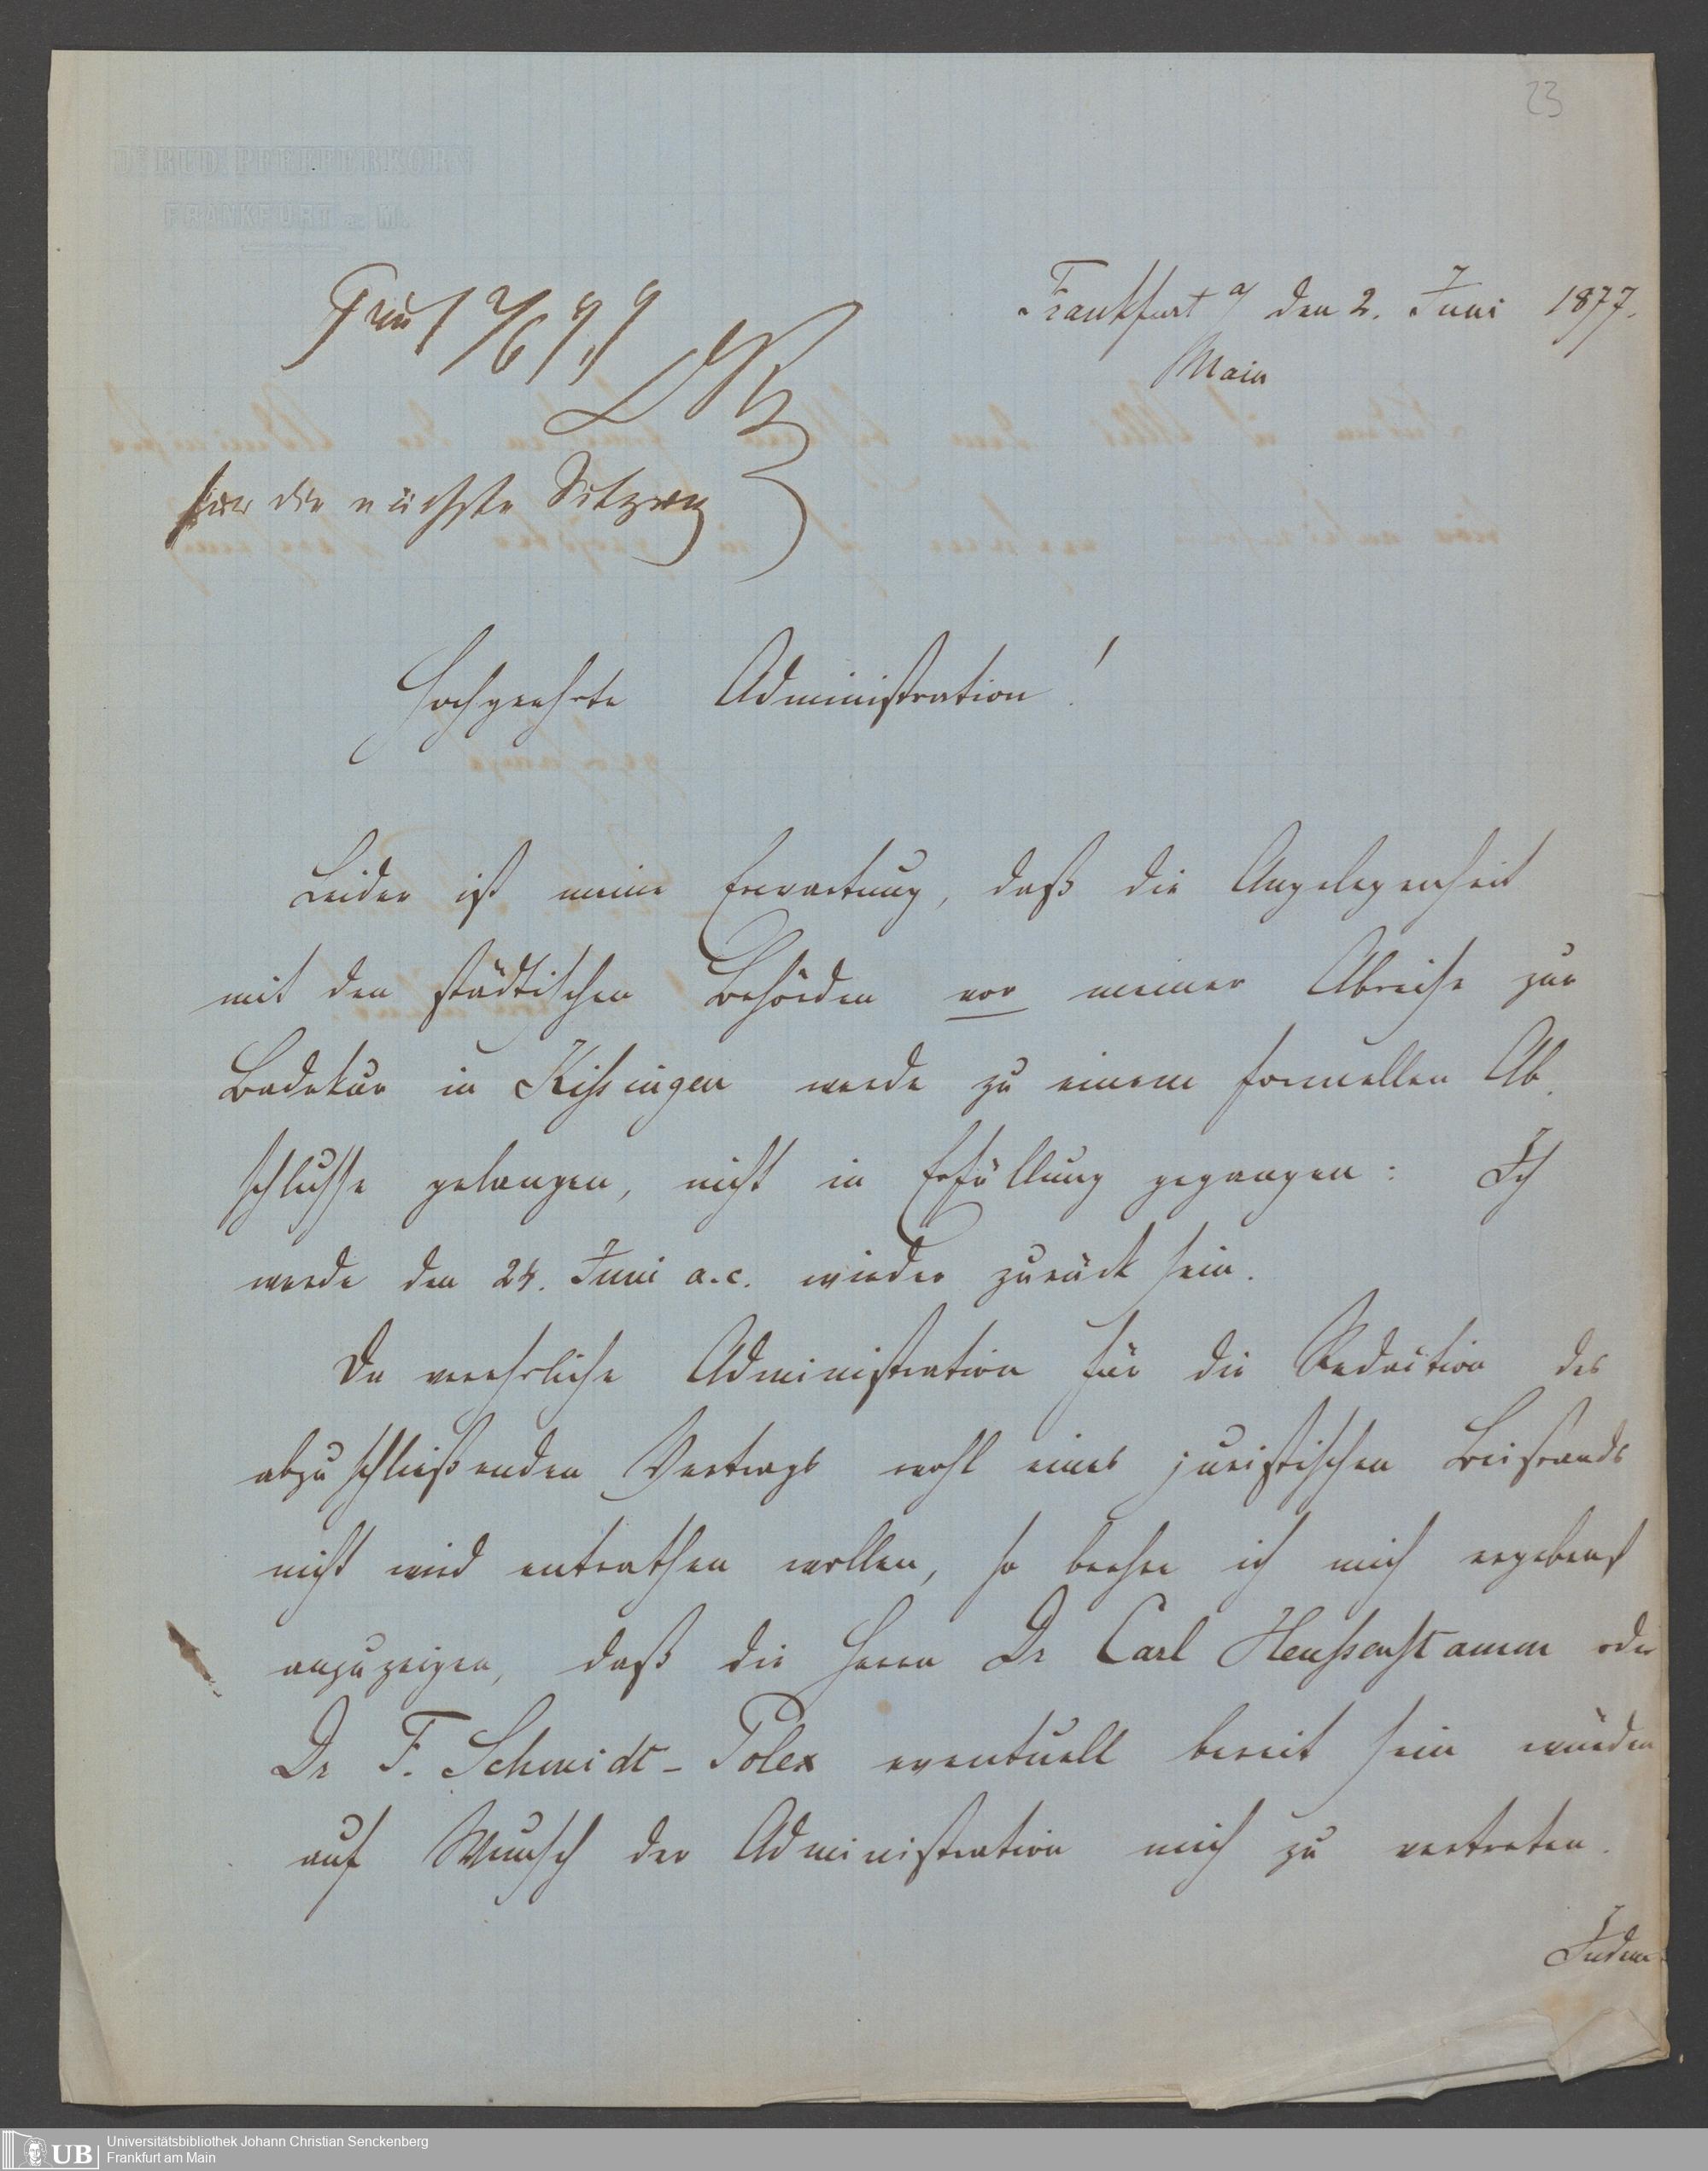 23
DR RUD. PFEFFERKORN
FRANKFURT a. M.
Frankfurt a/ den 2. Juni 1877.
Main
2/6 77
für die nächste Sitzung
Hochgeehrte Administration!
Leider ist meine Erwartung, daß die Angelegenheit
mit den städtischen Behörden vor meiner Abreise zur
Badekur in Kissingen werde zu einem formellen Ab-
schlusse gelangen, nicht in Erfüllung gegangen: Ich
werde den 24. Juni a.c. wieder zurück sein.
Da verehrliche Administration für die Redaction des
abzuschließenden Vertrags wohl eines juristischen Beistands
nicht wird entrathen wollen, so beehre ich mich ergebenst
anzuzeigen, daß die Herrn Dr Carl Heussenstamm oder
Dr F. Schmidt-Polex eventuell bereit sein würden
auf Wunsch der Administration mich zu vertreten.
Indem
Universitätsbibliothek Johann Christian Senckenberg
UB Frankfurt am Main